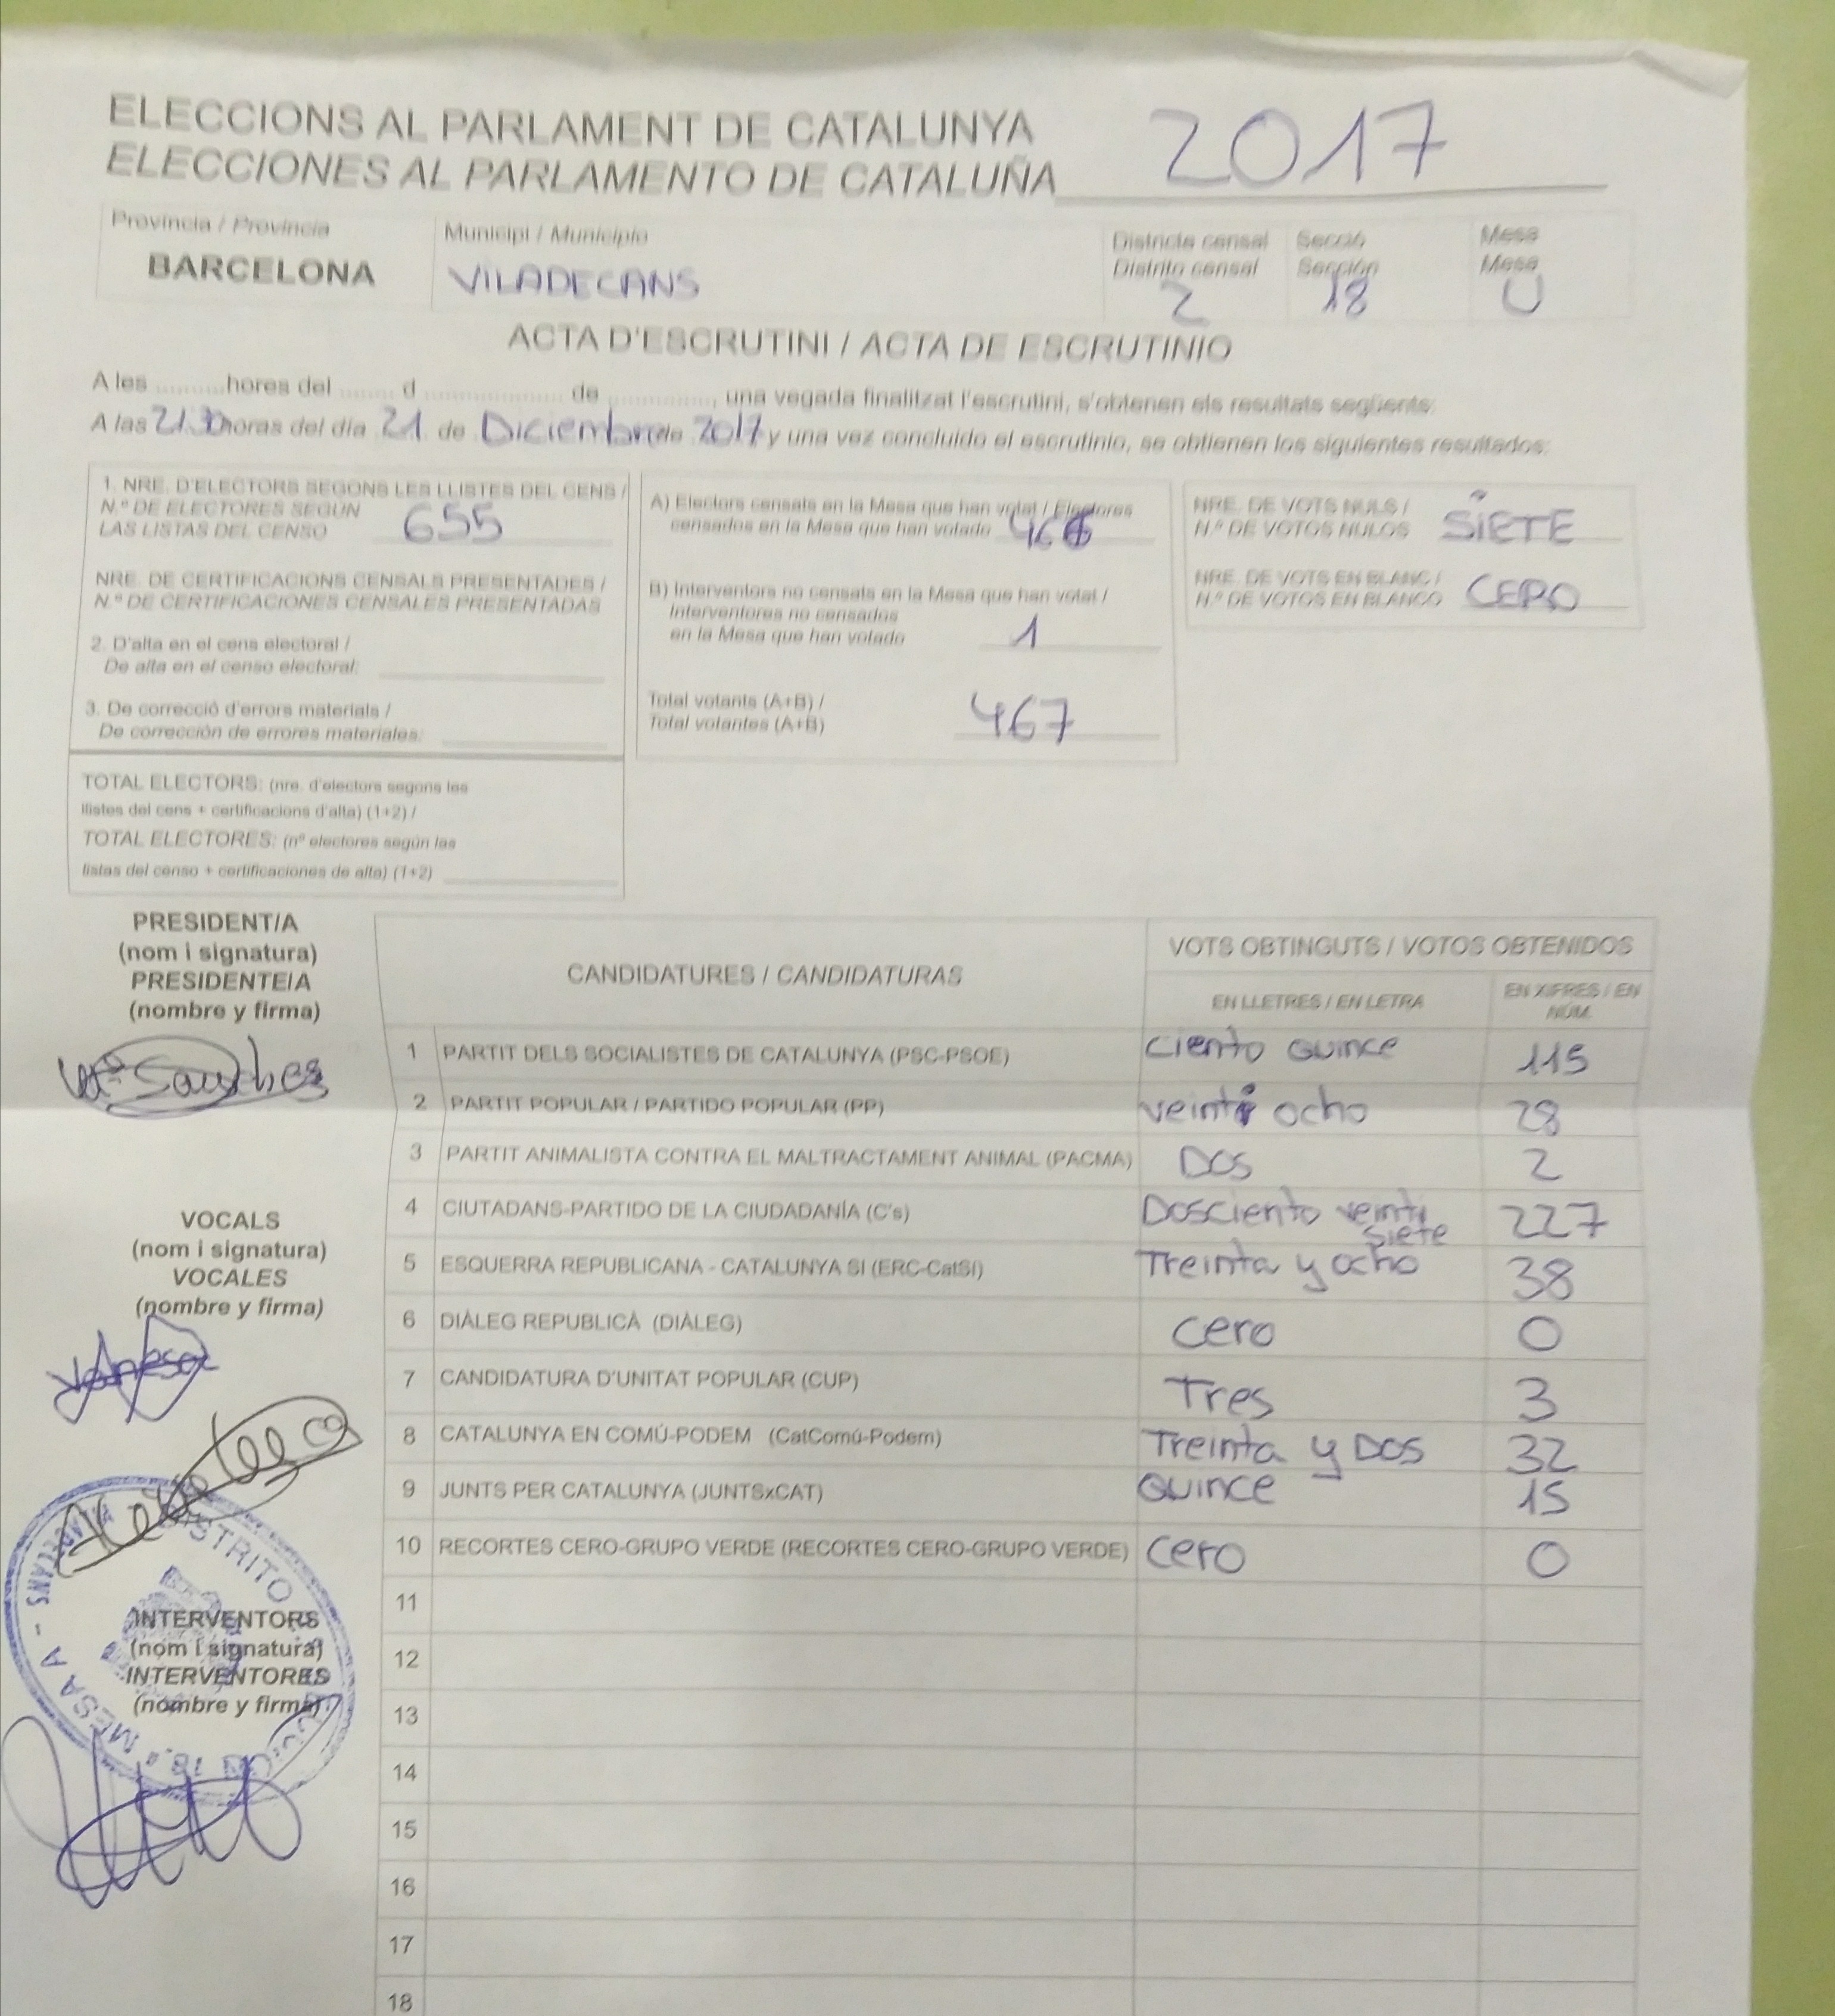 ELECCIONS AL PARLAMENT DE CATALUNYA
ELECCIONES AL PARLAMENTO DE CATALUÑA 2017
Província / Provincia
BARCELONA
Municipi / Municipio
VILADECANS
Districte censal
Distrito censal
2
Secció
Sección
18
Mesa
Mesa
U
ACTA D'ESCRUTINI / ACTA DE ESCRUTINIO
A les .......... hores del ........ d ...................... de ..............., una vegada finalitzat l'escrutini, s'obtenen els resultats següents:
A las 21:30 horas del día 21 de Diciembre de 2017 y una vez concluido el escrutinio, se obtienen los siguientes resultados:
1. NRE. D'ELECTORS SEGONS LES LLISTES DEL CENS /
N.º DE ELECTORES SEGÚN
LAS LISTAS DEL CENSO 655
NRE. DE CERTIFICACIONS CENSALS PRESENTADES /
N.º DE CERTIFICACIONES CENSALES PRESENTADAS
2. D'alta en el cens electoral /
De alta en el censo electoral:
3. De correcció d'errors materials /
De corrección de errores materiales:
TOTAL ELECTORS: (nre. d'electors segons les
llistes del cens + certificacions d'alta) (1+2) /
TOTAL ELECTORES: (nº electores según las
listas del censo + certificaciones de alta) (1+2)
A) Electors censats en la Mesa que han votat / Electores
censados en la Mesa que han votado 466
B) Interventors no censats en la Mesa que han votat /
Interventores no censados
en la Mesa que han votado 1
Total votants (A+B) /
Total votantes (A+B) 467
NRE. DE VOTS NULS /
N.º DE VOTOS NULOS SIETE
NRE. DE VOTS EN BLANC /
N.º DE VOTOS EN BLANCO CERO
PRESIDENT/A
(nom i signatura)
PRESIDENTE/A
(nombre y firma)
Mª Sanches
VOCALS
(nom i signatura)
VOCALES
(nombre y firma)
Vanesa
INTERVENTORS
(nom i signatura)
INTERVENTORES
(nombre y firma)
VILADECANS - MESA A
DISTRITO
18.ª
CANDIDATURES / CANDIDATURAS
VOTS OBTINGUTS / VOTOS OBTENIDOS
EN LLETRES / EN LETRA
EN XIFRES / EN
NÚM.
1 PARTIT DELS SOCIALISTES DE CATALUNYA (PSC-PSOE) Ciento Quince 115
2 PARTIT POPULAR / PARTIDO POPULAR (PP) veinti ocho 28
3 PARTIT ANIMALISTA CONTRA EL MALTRACTAMENT ANIMAL (PACMA) DOS 2
4 CIUTADANS-PARTIDO DE LA CIUDADANÍA (C's) Dosciento veinti siete 227
5 ESQUERRA REPUBLICANA - CATALUNYA SÍ (ERC-CatSÍ) Treinta y ocho 38
6 DIÀLEG REPUBLICÀ (DIÀLEG) Cero 0
7 CANDIDATURA D'UNITAT POPULAR (CUP) Tres 3
8 CATALUNYA EN COMÚ-PODEM (CatComú-Podem) Treinta y DOS 32
9 JUNTS PER CATALUNYA (JUNTSxCAT) Quince 15
10 RECORTES CERO-GRUPO VERDE (RECORTES CERO-GRUPO VERDE) Cero 0
11
12
13
14
15
16
17
18